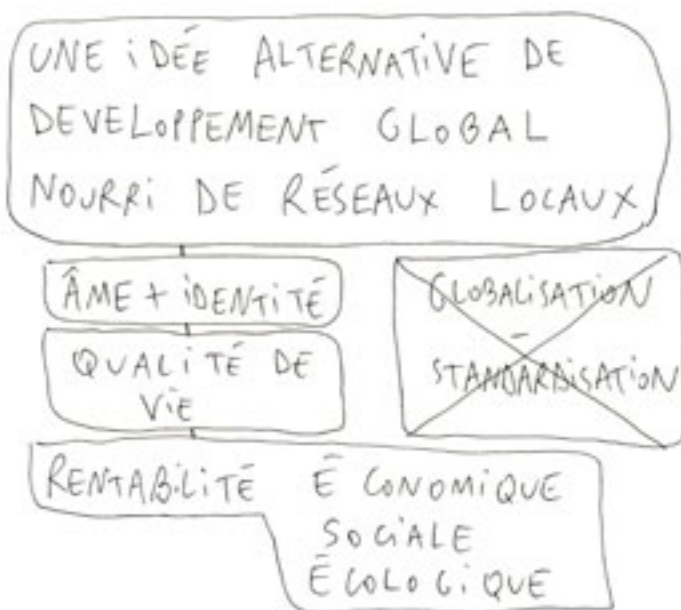 UNE iDÉE ALTERNATIVE DE
DEVELOPPEMENT GLOBAL
NOURRi DE RÉSEAUX LOCAUX
ÂME + iDENTITÉ
QUALITÉ DE
ViE
GLOBALiSATION
-
STANDARDiSATiON
RENTABiLiTÉ ÉCONOMiQUE
SOCiALE
ÉCOLOGiQUE